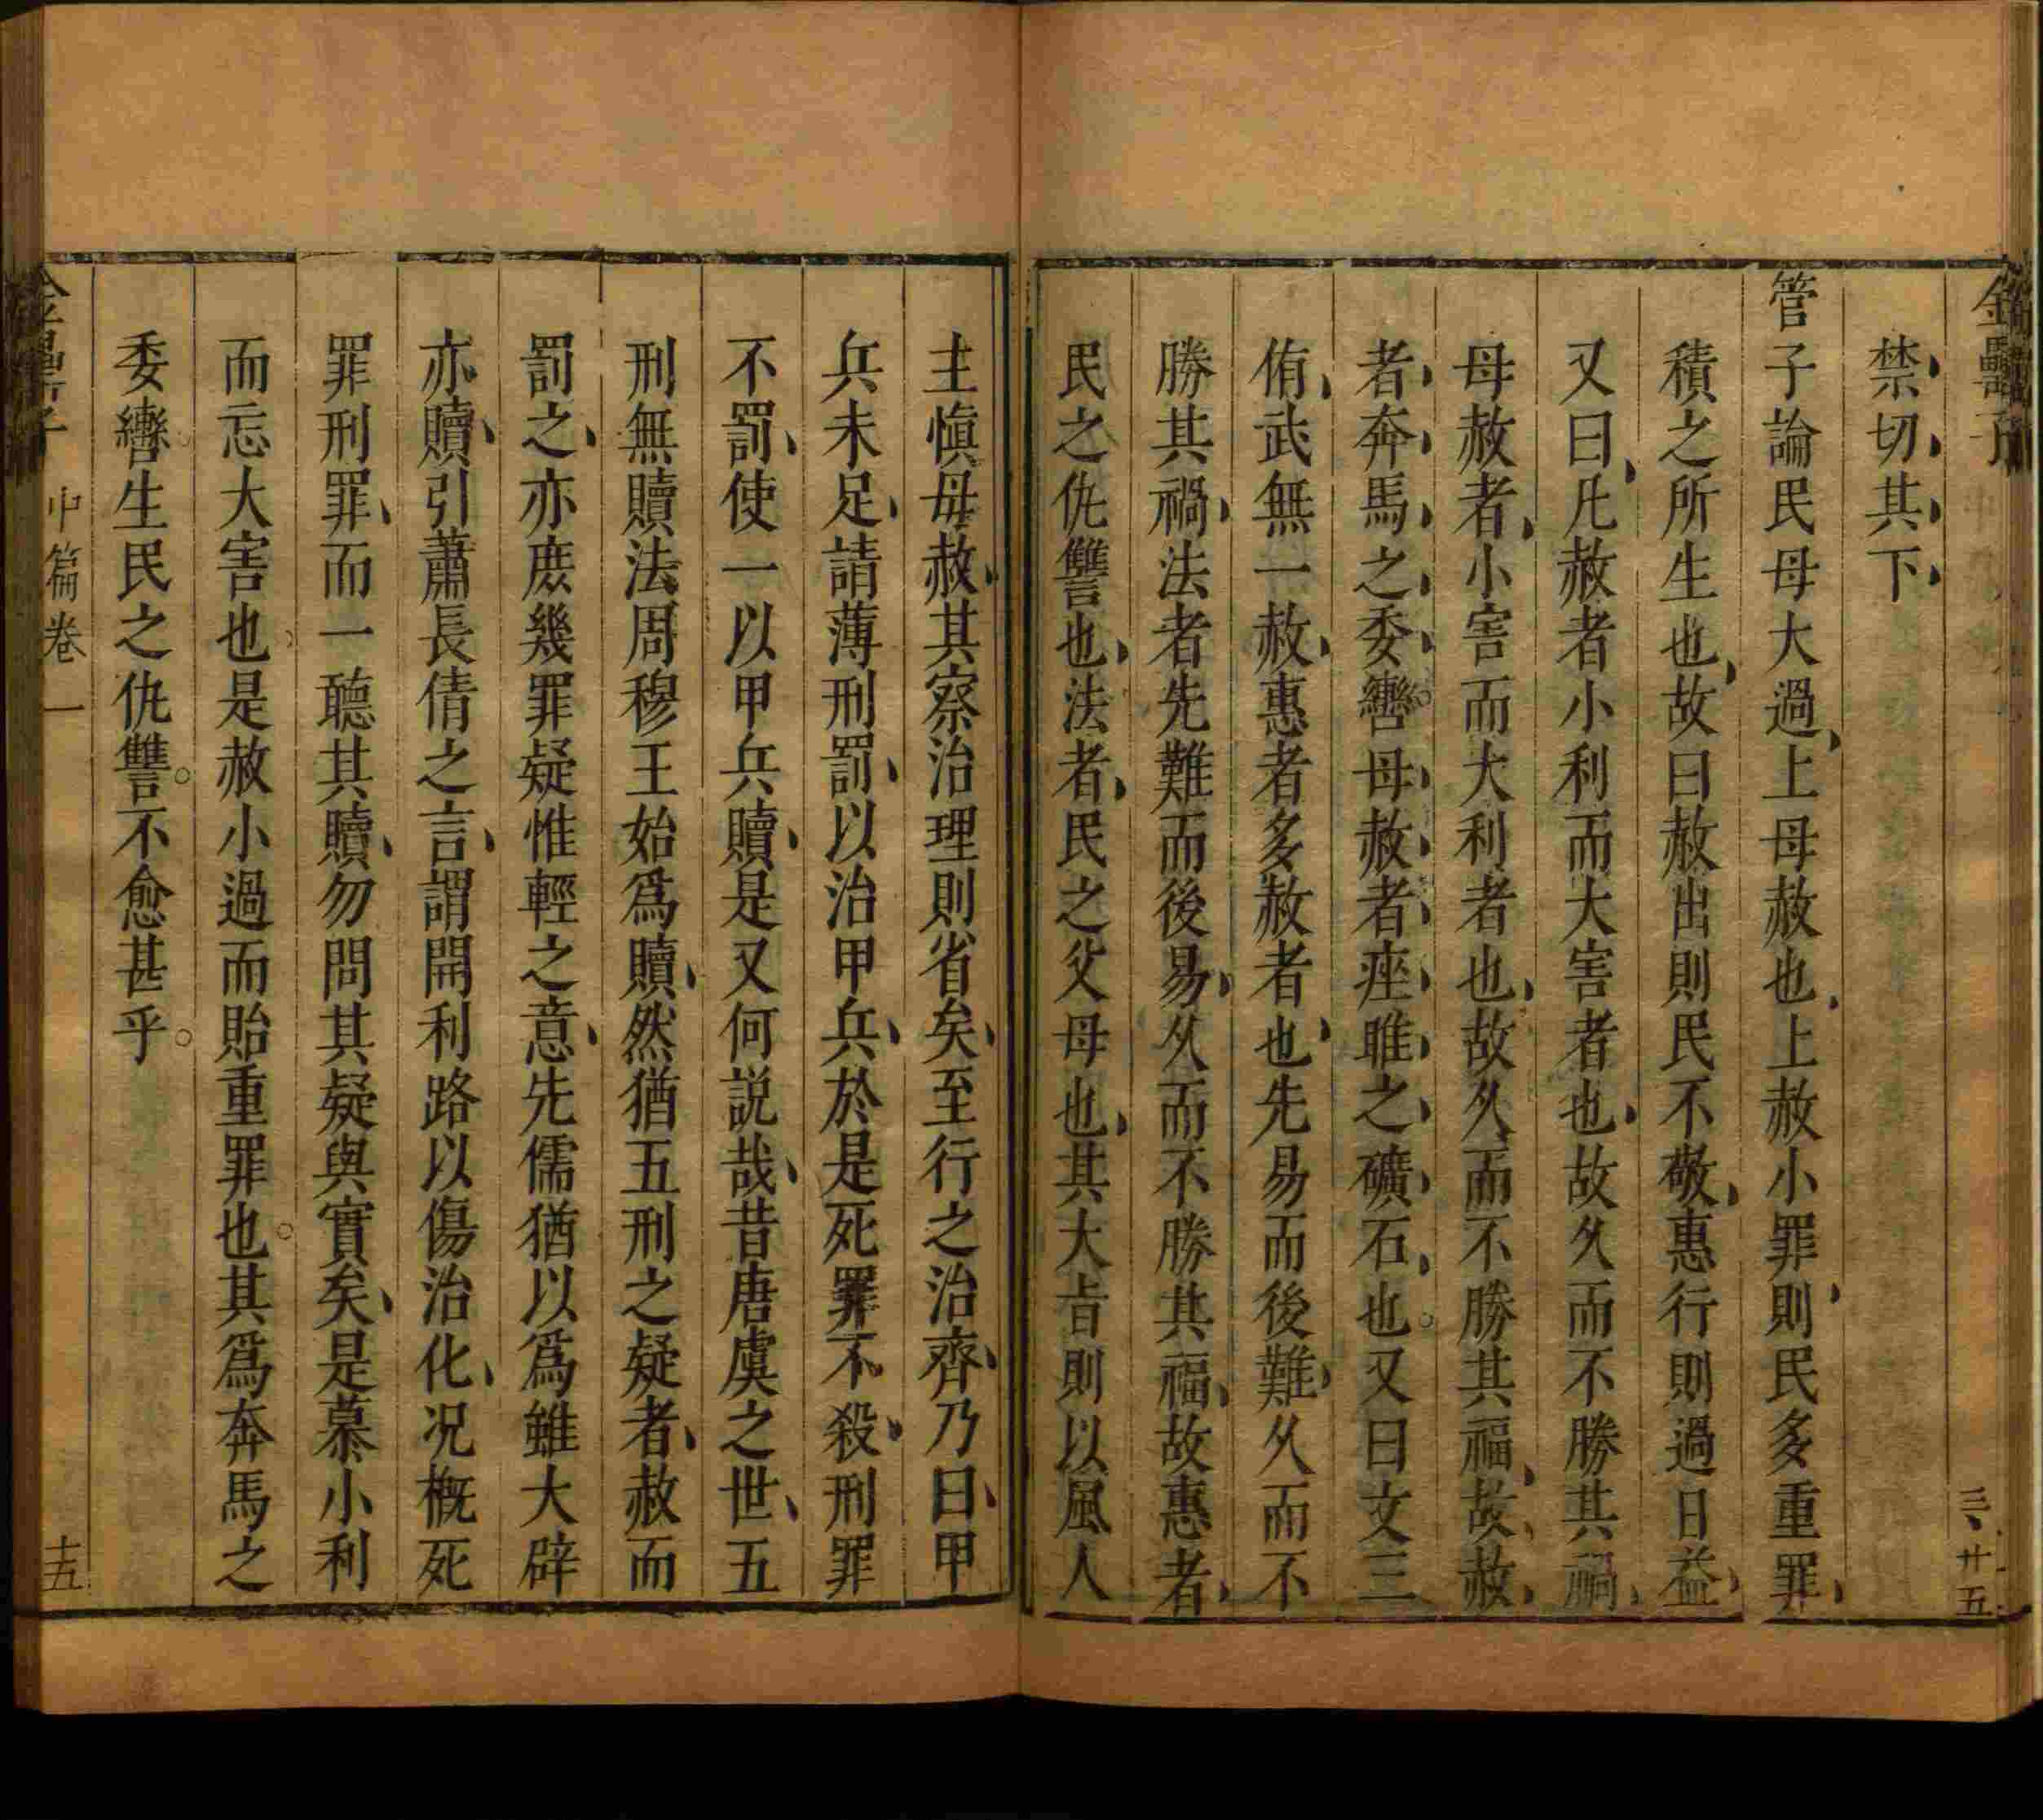 金罍子
禁切其下
管子論民母大過上母赦也上赦小罪則民多重罪
積之所生也故曰赦出則民不敬惠行則過日益
又曰凡赦者小利而大害者也故久而不勝其禍
母赦者小害而大利者也故久而不勝其福故赦
者奔馬之委轡母赦者痤雎之礦石也又曰文三
侑武無一赦惠者多赦者也先易而後難久而不
勝其禍法者先難而後易久而不勝其福故惠者
民之仇讐也法者民之父母也其大㫖則以風人
主慎毋赦其察治理則省矣至行之治齊乃曰甲
兵未足請薄刑罰以治甲兵兵於是死罪不殺刑罪
不罰使一以甲兵贖是又何説哉昔唐虞之世五
刑無贖法周穆王始爲贖然猶五刑之疑者赦而
罰之亦庶幾罪疑惟輕之意先儒猶以爲雖大辟
亦贖引蕭長倩之言謂開利路以傷治化况概死
罪刑罪而一聽其贖勿問其疑與實矣是慕小利
而忘大害也是赦小過而貽重罪也其爲奔馬之
委轡生民之仇讐不愈甚乎
金罍子 中篇卷一 十五